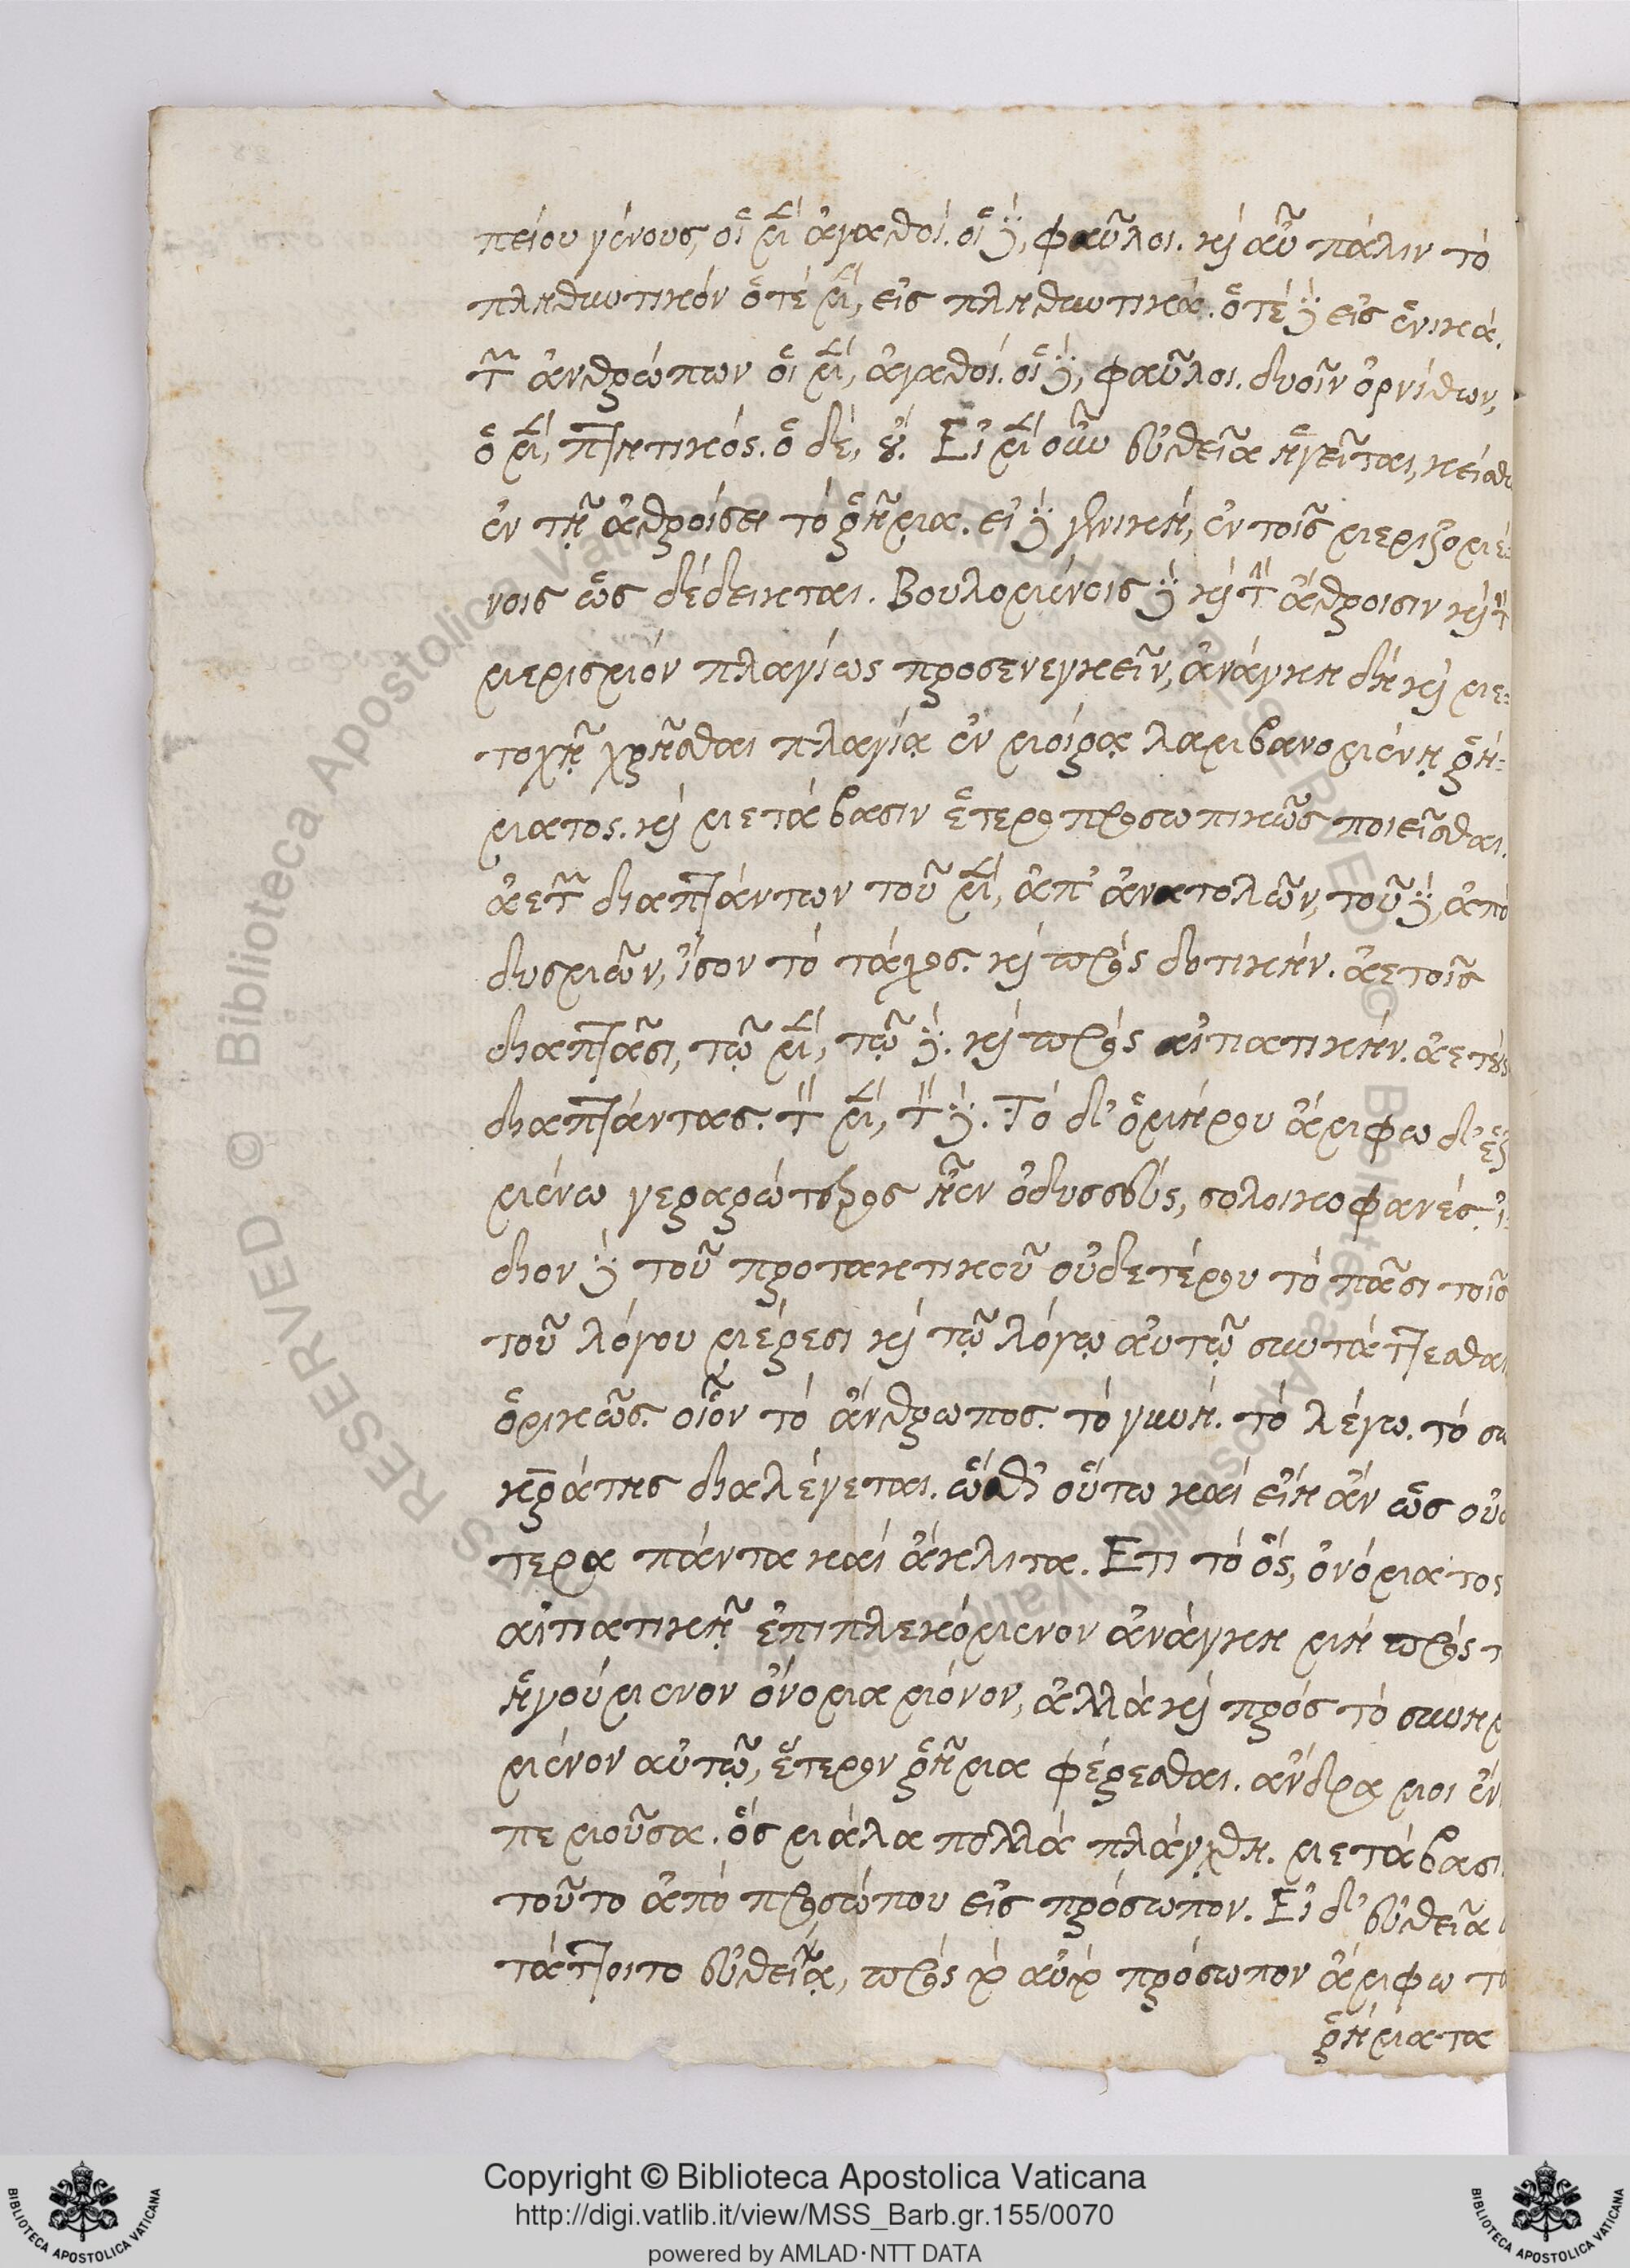 πείου γένους, οἱ μὲν ἀγαθοί. οἱ δὲ, φαῦλοι. καὶ αὖ πάλιν τὸ
πληθυντικὸν ὁτὲ μὲν, εἰς πληθυντικά. ὁτὲ δὲ εἰς ἑνικά.
τῶν ἀνθρώπων οἱ μὲν, ἀγαθοί. οἱ δὲ, φαῦλοι. δυοῖν ὀρνίθων,
ὁ μὲν, πτητικός. ὁ δὲ, οὔ. Εἰ μὲν οὖν εὐθεῖα ἡγεῖται, κείσθω
ἐν τῇ ἀθροίσει τὸ ῥῆμα. εἰ δὲ γενικὴ, ἐν τοῖς μεριζομέ-
νοις ὡς δέδεικται. Βουλομένοις δὲ καὶ τὴν ἄθροισιν καὶ τὸν
μερισμὸν πλαγίως προσενεγκεῖν, ἀνάγκη δὴ καὶ με-
τοχῇ χρῆσθαι πλαγίᾳ ἐν μοίρᾳ λαμβανομένῃ ῥή-
ματος. καὶ μετάβασιν ἑτεροπροσωπικῶς ποιεῖσθαι.
ἀετῶν διαπτάντων τοῦ μὲν, ἀπ' ἀνατολῶν, τοῦ δὲ, ἀπὸ
δυσμῶν, ἴσον τὸ τάχος. καὶ πρὸς δοτικήν. ἀετοῖς
διαπτᾶσι, τῷ μὲν, τῷ δὲ. καὶ πρὸς αἰτιατικήν. ἀετοὺς
διαπτάντας. τὸν μὲν, τὸν δὲ. Τὸ δ' ὁμήρου ἄμφω δ' ἑζ
μένω γεραρώτερος ἦεν ὀδυσσεὺς, σολοικοφανές. ἴ-
διον δὲ τοῦ προτακτικοῦ οὐδετέρου τὸ πᾶσι τοῖς
τοῦ λόγου μέρεσι καὶ τῷ λόγῳ αὐτῷ συντάττεσθαι
ὁρικῶς. οἷον τὸ ἄνθρωπος. τὸ γυνή. τὸ λέγω. τὸ σω
κράτης διαλέγεται. ὥσθ' οὕτω καὶ εἴη ἂν ὡς οὐδ
τερα πάντα καὶ ἄκλιτα. Ετι τὸ ὃς, ὀνόματος
αἰτιατικῇ ἐπιπλεκόμενον ἀνάγκη μὴ πρὸς τ
ἡγούμενον ὄνομα μόνον, ἀλλὰ καὶ πρὸς τὸ συνημ
μένον αὐτῷ, ἕτερον ῥῆμα φέρεσθαι. ἄνδρα μοι ἔν
πε μοῦσα. ὃς μάλα πολλὰ πλάγχθη. μετάβασι
τοῦτο ἀπὸ προσώπου εἰς πρόσωπον. Εἰ δ' εὐθεῖα
τάττοιτο εὐθείᾳ, πρὸς τὸ αὐτὸ πρόσωπον ἄμφω τὰ
ῥήματα
Copyright © Biblioteca Apostolica Vaticana
http://digi.vatlib.it/view/MSS_Barb.gr.155/0070
powered by AMLAD·NTT DATA